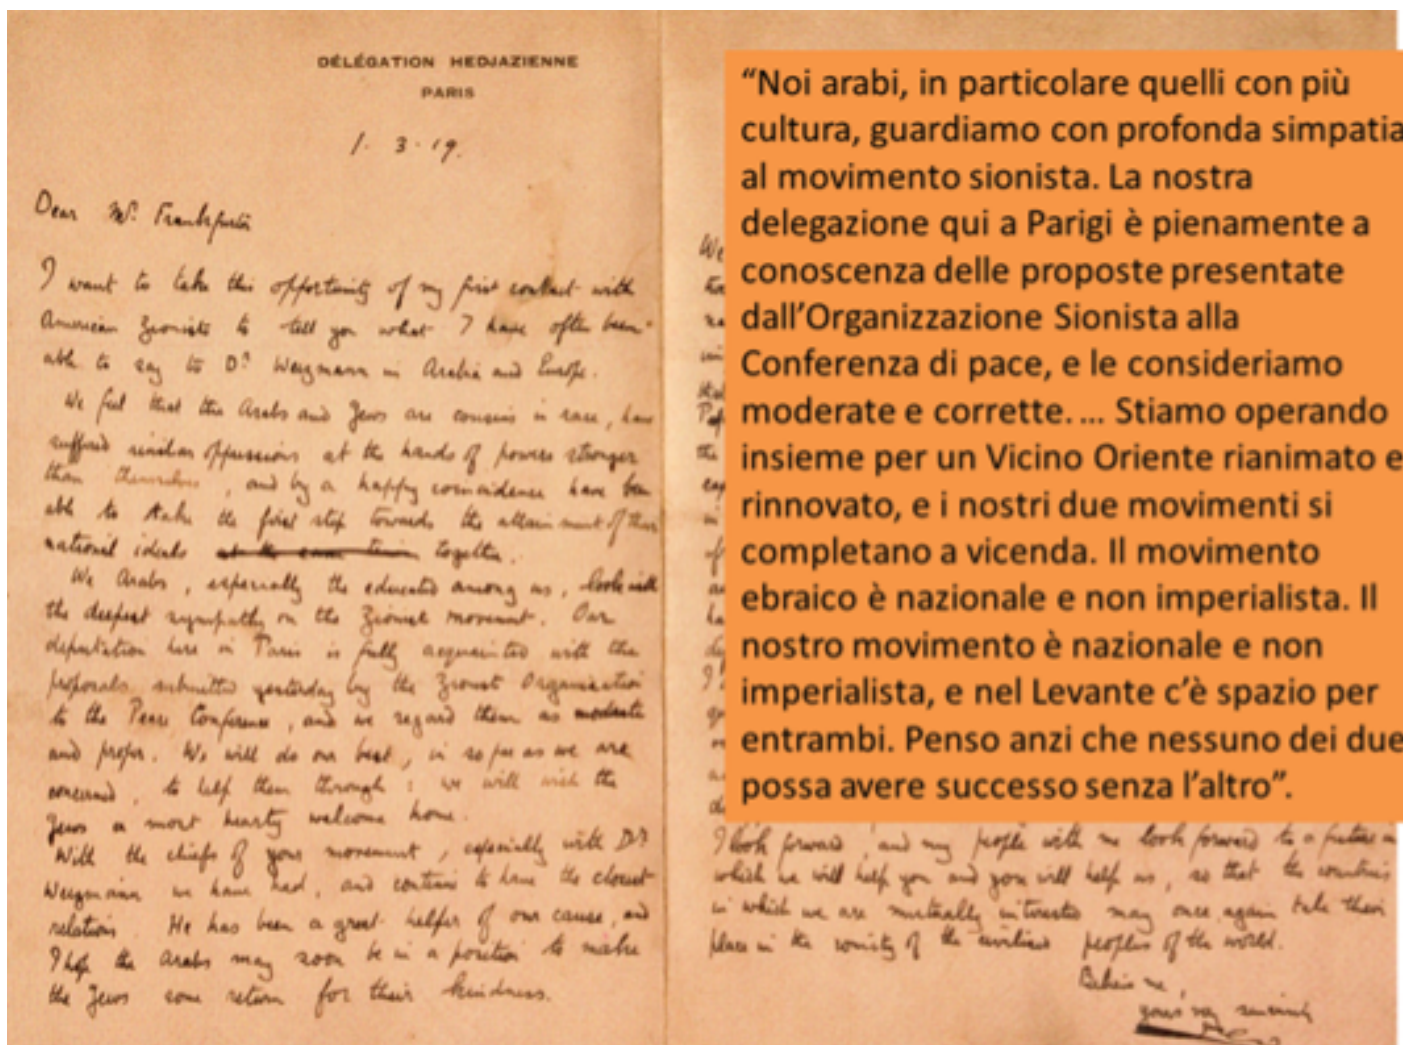 DÉLÉGATION HEDJAZIENNE
PARIS
1. 3. 19.
Dear Mr. Frankfurter
I want to take this opportunity of my first contact with
American Zionists to tell you what I have often been
able to say to Dr. Weizmann in Arabia and Europe.
We feel that the Arabs and Jews are cousins in race, have
suffered similar oppressions at the hands of powers stronger
than themselves, and by a happy coincidence have been
able to take the first step towards the attainment of their
national ideals together.
We Arabs, especially the educated among us, look with
the deepest sympathy on the Zionist movement. Our
deputation here in Paris is fully acquainted with the
proposals submitted yesterday by the Zionist Organisation
to the Peace Conference, and we regard them as moderate
and proper. We will do our best, in so far as we are
concerned, to help them through: we will wish the
Jews a most hearty welcome home.
With the chiefs of your movement, especially with Dr.
Weizmann we have had, and continue to have the closest
relations. He has been a great helper of our cause, and
I hope the Arabs may soon be in a position to make
the Jews some return for their kindness.
We
“Noi arabi, in particolare quelli con più
cultura, guardiamo con profonda simpatia
al movimento sionista. La nostra
delegazione qui a Parigi è pienamente a
conoscenza delle proposte presentate
dall’Organizzazione Sionista alla
Conferenza di pace, e le consideriamo
moderate e corrette. ... Stiamo operando
insieme per un Vicino Oriente rianimato e
rinnovato, e i nostri due movimenti si
completano a vicenda. Il movimento
ebraico è nazionale e non imperialista. Il
nostro movimento è nazionale e non
imperialista, e nel Levante c’è spazio per
entrambi. Penso anzi che nessuno dei due
possa avere successo senza l’altro”.
I look forward, and my people with me look forward to a future in
which we will help you and you will help us, so that the countries
in which we are mutually interested may once again take their
place in the comity of the civilised peoples of the world.
Believe me,
yours very sincerely